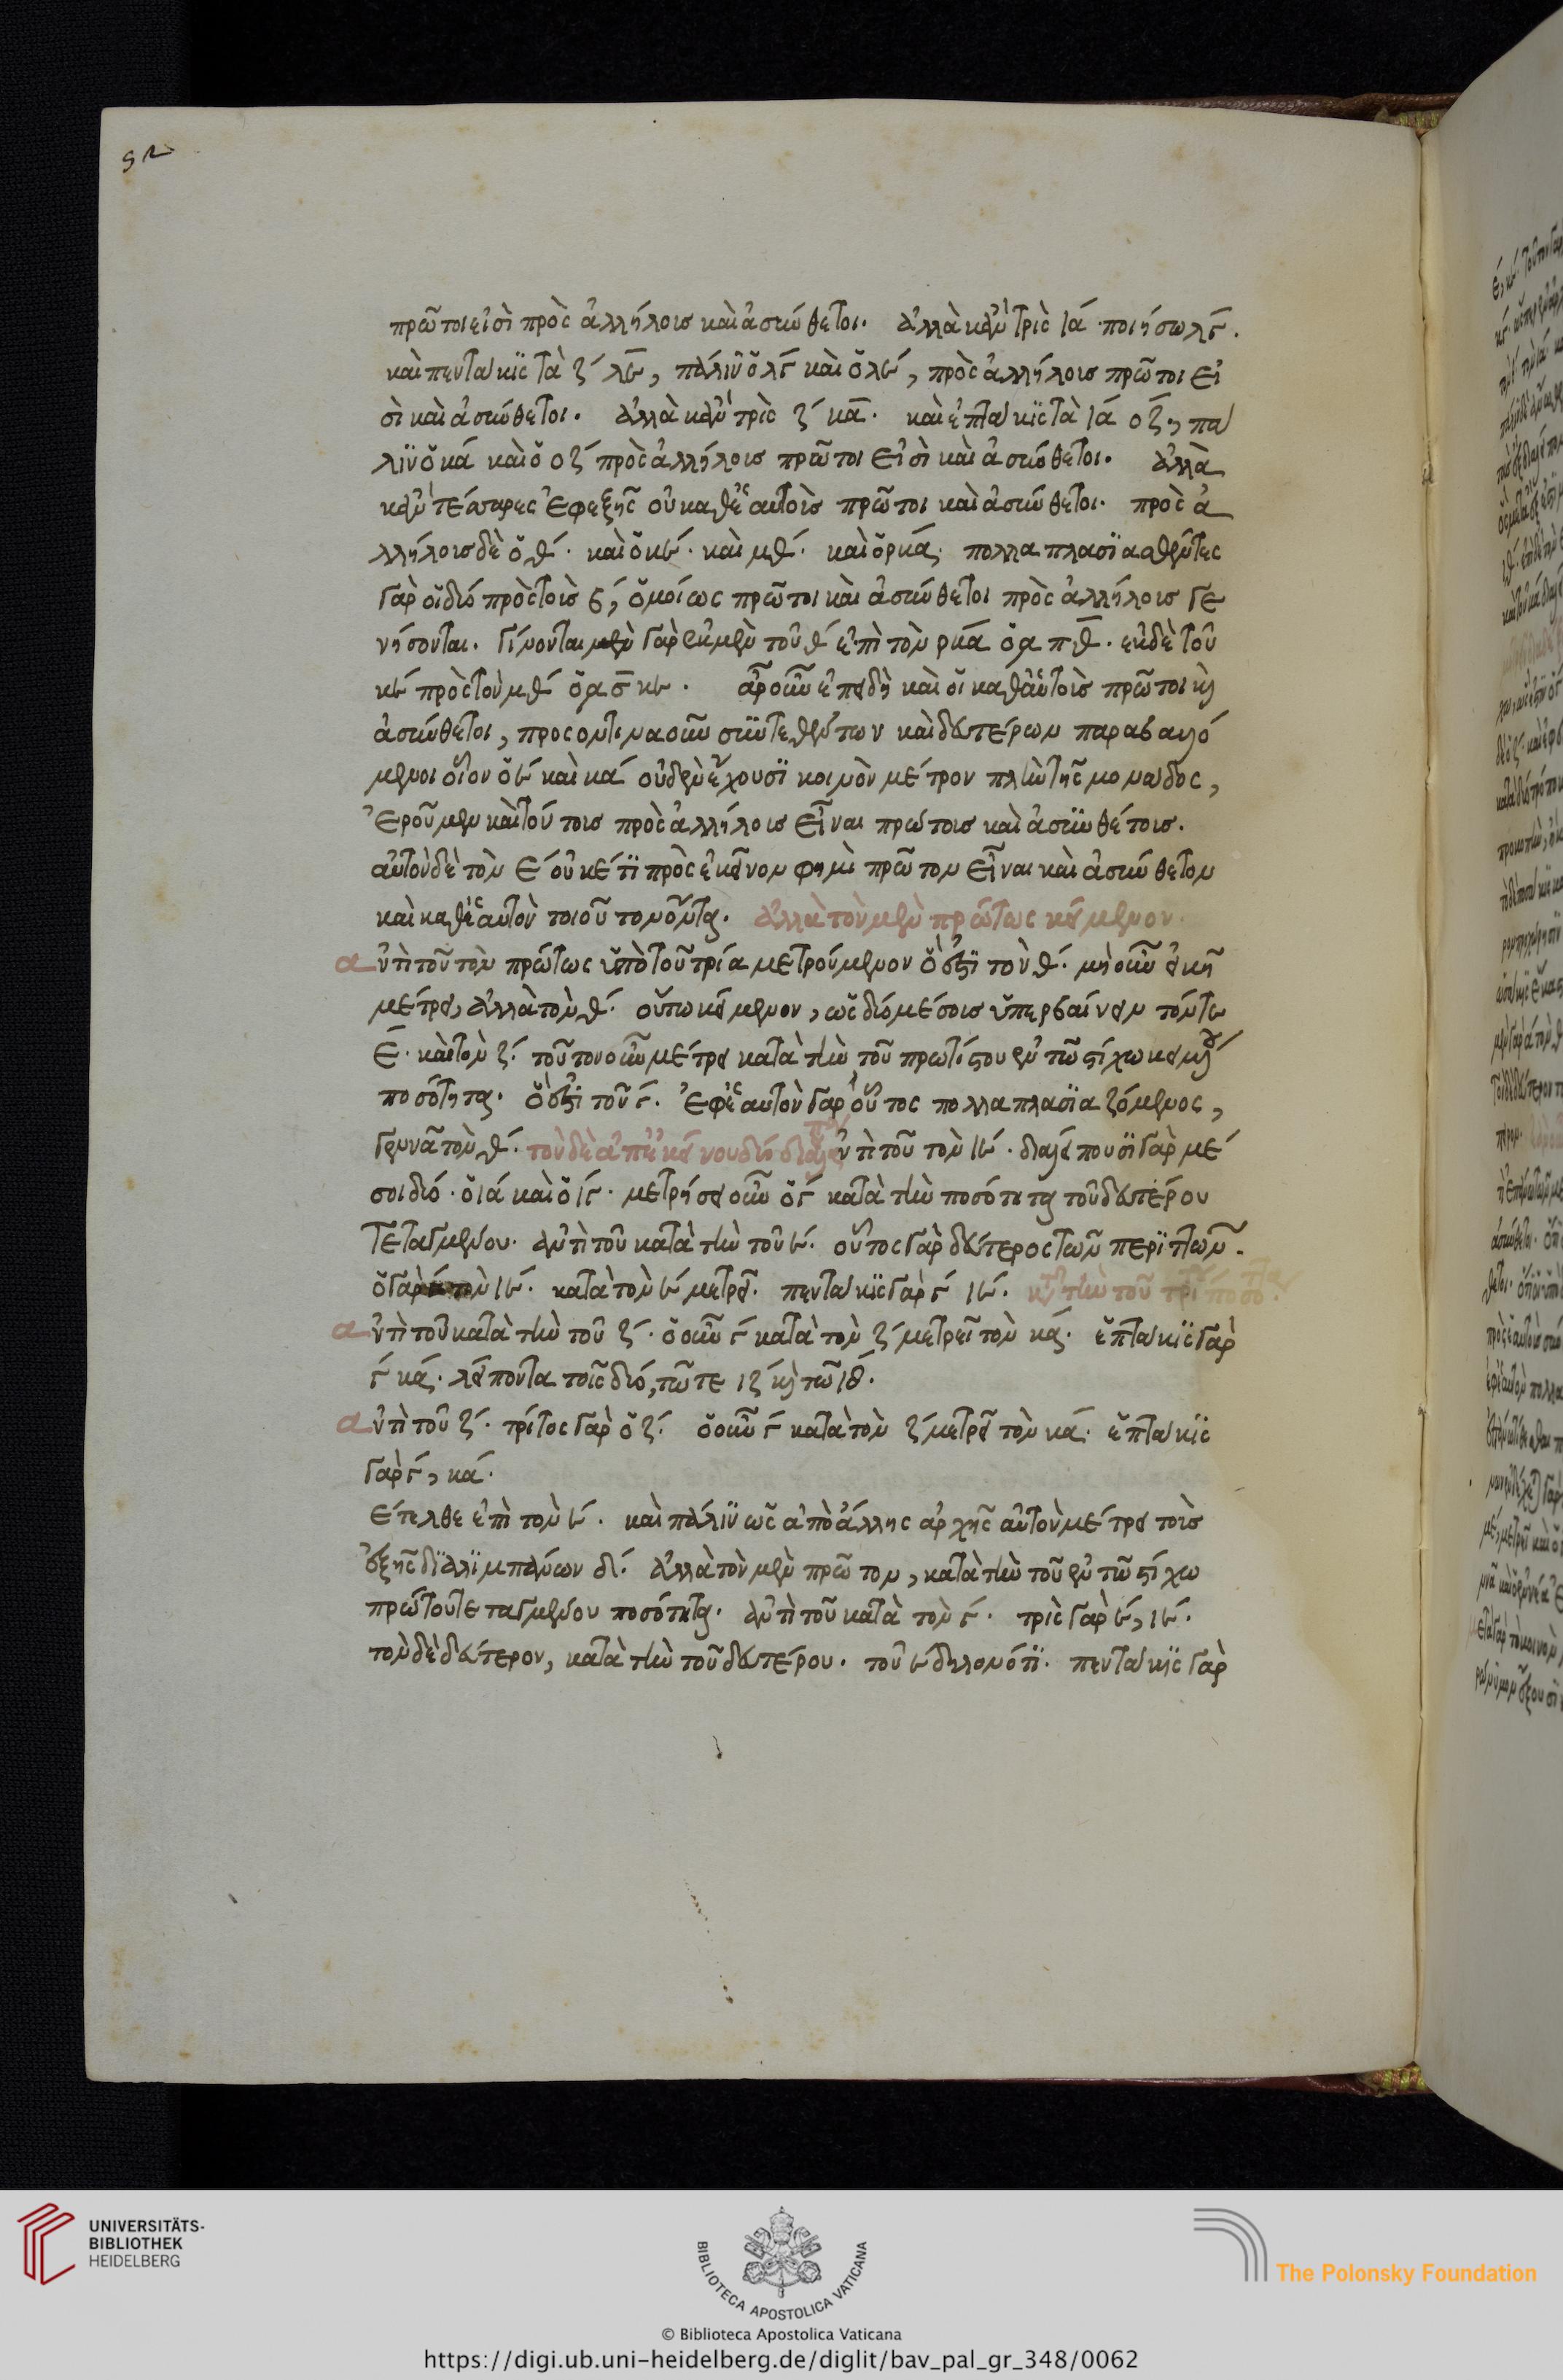 52
πρῶτοι εἰσὶ πρὸς ἀλλήλοις καὶ ἀσύνθετοι. ἀλλὰ κἂν τρὶς ια ποιήσω λγ.
καὶ πεντακις τὰ ζ λε, πάλιν ὁ λγ καὶ ὁ λε, πρὸς ἀλλήλοις πρῶτοι εἰ
σὶ καὶ ἀσύνθετοι. ἀλλὰ κἂν τρὶς ζ κα. καὶ ἑπτακις τὰ ια οζ, πα
λιν ὁ κα καὶ ὁ οζ πρὸς ἀλλήλοις πρῶτοι εἰσὶ καὶ ἀσύνθετοι. ἀλλὰ
κἂν τέσσαρες ἐφεξῆς οὐ καθ' ἑαυτοὺς πρῶτοι καὶ ἀσύνθετοι. πρὸς ἀ
λλήλοις δὲ ὁ θ. καὶ ὁ κε. καὶ μθ. καὶ ὁ ρκα. πολλαπλασιασθέντες
γὰρ οἱ δύο πρὸς τοὺς ϛ, ὁμοίως πρῶτοι καὶ ἀσύνθετοι πρὸς ἀλλήλοις γε
νήσονται. γίνονται μὲν γὰρ ἐκ μὲν τοῦ θ ἐπὶ τὸν ρκα ὁ α πθ. ἐκ δὲ τοῦ
κε πρὸς τὸν μθ ὁ α σ κε. ἆρ' οὖν ἐπειδὴ καὶ οἱ καθ' ἑαυτοὺς πρῶτοι καὶ
ἀσύνθετοι, πρός τινας οὖν συντεθέντων καὶ δευτέρων παραβαλλό
μενοι οἷον ὁ ε καὶ κα οὐδὲν ἔχουσι κοινὸν μέτρον πλὴν τῆς μοναδος,
ἐροῦμεν καὶ τούτοις πρὸς ἀλλήλοις εἶναι πρώτοις καὶ ἀσυνθέτοις.
αὐτὸν δὲ τὸν ε οὐκέτι πρὸς ἐκεῖνον φημὶ πρῶτον εἶναι καὶ ἀσύνθετον
καὶ καθ' ἑαυτὸν τοιοῦτον ὄντα. ἀλλὰ τὸν μὲν πρώτως κείμενον.
ἀντὶ τοῦ τὸν πρώτως ὑπὸ τοῦ τρία μετρούμενον ὅ ἐστι τὸν θ. μὴ οὖν εἰκῆ
μέτρει, ἀλλὰ τὸν θ. οὕτω κείμενον, ὡς δύο μέσοις ὑπερβαίνειν τόν τε
ε. καὶ τὸν ζ. τοῦτον οὖν μέτρει κατὰ τὴν τοῦ πρωτίστου ἐν τῷ στίχῳ κειμένου
ποσότητα. ὅ ἐστι τοῦ γ. ἐφ' ἑαυτὸν γὰρ οὗτος πολλαπλασιαζόμενος,
γεννᾷ τὸν θ. τὸν δὲ ἀπ' ἐκείνου δύο διαλείποντα ἀντὶ τοῦ τὸν ιε. διαλείπουσι γὰρ μέ
σοι δύο. ὁ ια καὶ ὁ ιγ. μετρήσει οὖν ὁ γ κατὰ τὴν ποσότητα τοῦ δευτέρου
τεταγμένου. ἀντὶ τοῦ κατὰ τὴν τοῦ ε. οὗτος γὰρ δεύτερος τῶν περιττῶν.
ὁ γὰρ τὸν ιε. κατὰ τὸν ε μετρεῖ. πεντακις γὰρ γ ιε. κατὰ τὴν τοῦ τρίτου ποσο.
ἀντὶ τοῦ κατὰ τὴν τοῦ ζ. ὁ οὖν γ κατὰ τὸν ζ μετρεῖ τὸν κα. ἑπτακις γὰρ
γ κα. λείποντα τοὺς δύο, τῶ τε ιζ καὶ τῶ ιθ.
ἀντὶ τοῦ ζ. τρίτος γὰρ ὁ ζ. ὁ οὖν γ κατὰ τὸν ζ μετρεῖ τὸν κα. ἑπτακις
γὰρ γ, κα.
ἔπελθε ἐπὶ τὸν ε. καὶ πάλιν ὡς ἀπὸ ἄλλης ἀρχῆς αὐτὸν μέτρει τοὺς
ἑξῆς διαλιμπανων δ. ἀλλὰ τὸν μὲν πρῶτον, κατὰ τὴν τοῦ ἐν τῷ στίχῳ
πρώτου τεταγμένου ποσότητα. ἀντὶ τοῦ κατὰ τὸν γ. τρὶς γὰρ ε, ιε.
τὸν δὲ δεύτερον, κατὰ τὴν τοῦ δευτέρου. τοῦ ε δηλονότι. πεντακις γὰρ
UNIVERSITÄTS-
BIBLIOTHEK
HEIDELBERG
BIBLIOTECA APOSTOLICA VATICANA
The Polonsky Foundation
© Biblioteca Apostolica Vaticana
https://digi.ub.uni-heidelberg.de/diglit/bav_pal_gr_348/0062